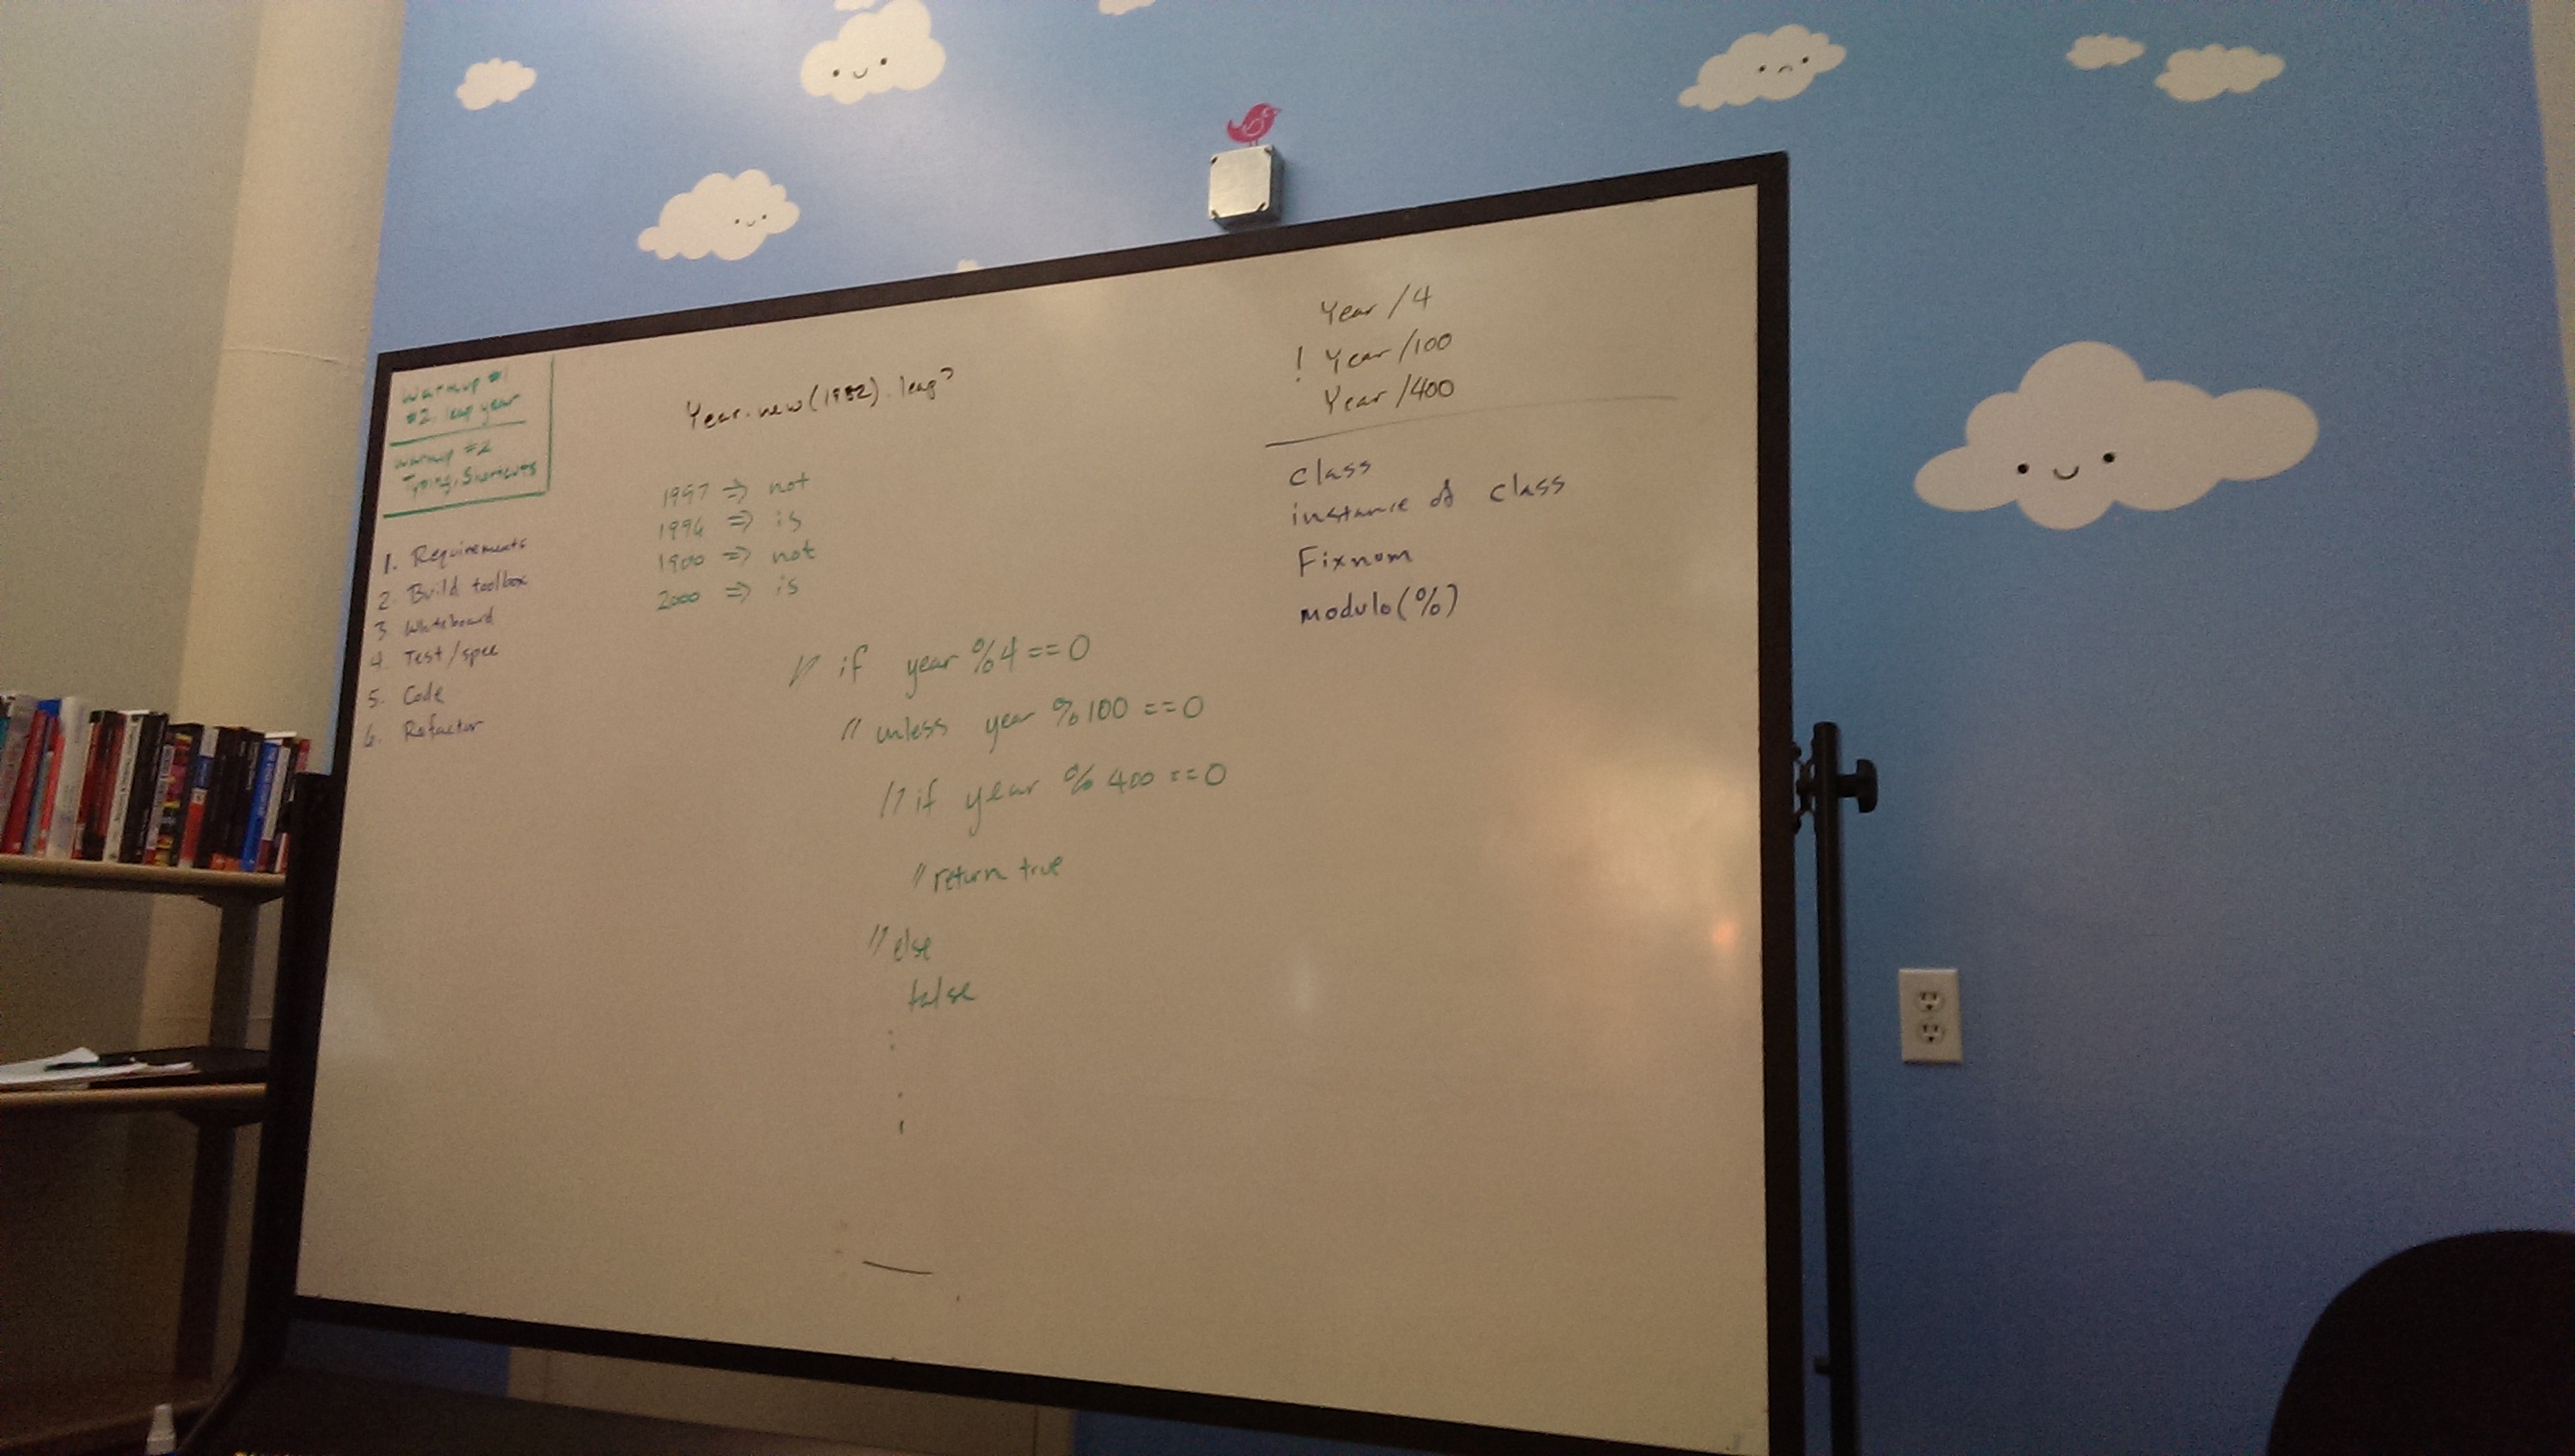 Warmup #1
#2. leap year
Warmup #2
Typing, Shortcuts
1. Requirements
2. Build toolbox
3 Whiteboard
4. Test/spec
5. Code
6. Refactor
Year.new(1982).leap?
1997 => not
1996 => is
1900 => not
2000 => is
// if year %4 == 0
// unless year %100 == 0
// if year % 400 == 0
// return true
// else
false
Year /4
! Year /100
Year /400
class
instance of class
Fixnum
modulo (%)